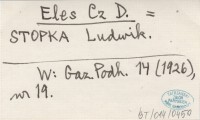 Eles Cz D. =
STOPKA Ludwik.
W: Gaz. Podh. 14 (1926),
nr 19.